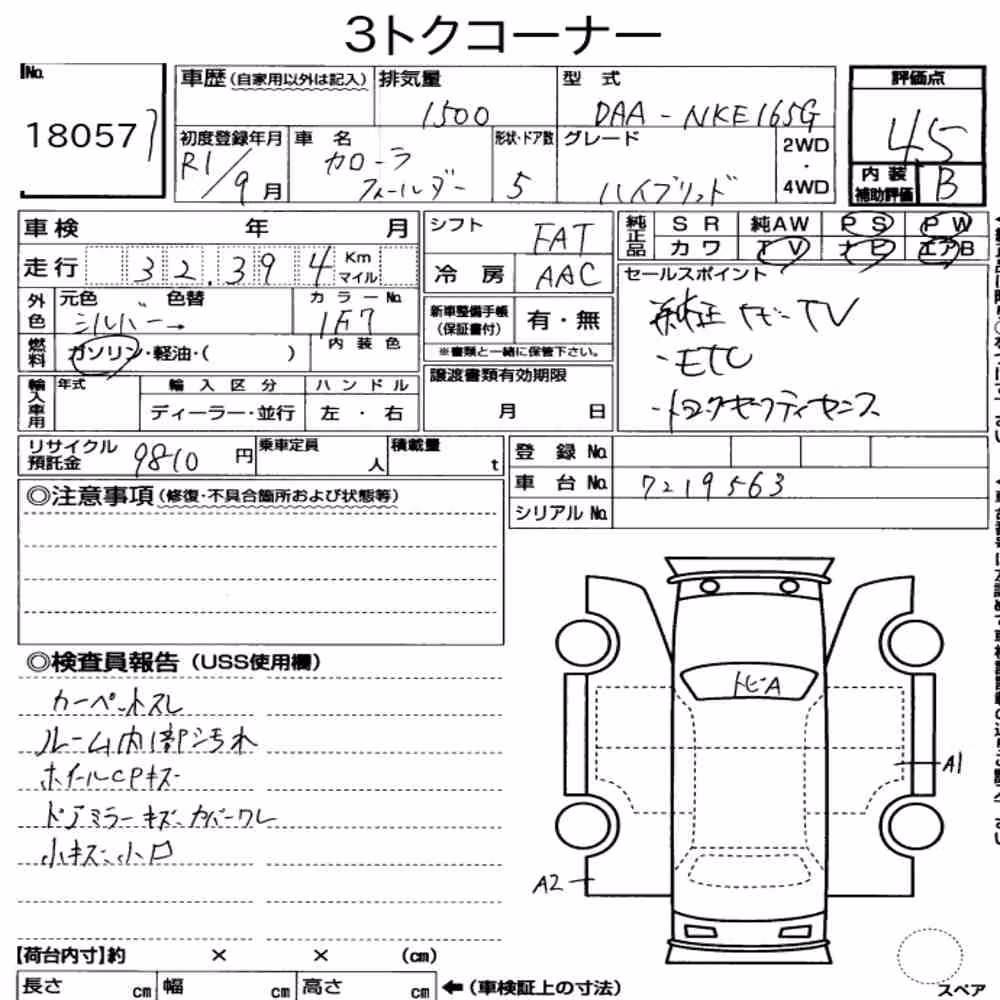 3トクコーナー
No.
18057
車歴(自家用以外は記入)
排気量
1500
型式
DAA-NKE165G
評価点
4.5
初度登録年月
R1/9月
車名
カローラ
フィールダー
形状・ドア数
5
グレード
ハイブリッド
2WD
・
4WD
内装
補助評価
B
車検 年 月
走行 32,394 Km
マイル
外色
元色 〃 色替
シルバー→
カラーNo.
1F7
燃料
ガソリン・軽油・( )
内装色
輸入車用
年式
輸入区分
ディーラー・並行
ハンドル
左・右
シフト
FAT
冷房
AAC
新車整備手帳
(保証書付)
有・無
※書類と一緒に保管下さい。
譲渡書類有効期限
月 日
純正品
SR 純AW PS PW
カワ TV ナビ エアB
セールスポイント
純正ナビ-TV
・ETC
・トヨタセーフティセンス
リサイクル
預託金
9810 円
乗車定員
人
積載量
t
登録No.
車台No. 7219563
シリアルNo.
◎注意事項(修復・不具合箇所および状態等)
◎検査員報告(USS使用欄)
カーペットスレ
ルーム内1部汚れ
ホイールCPキズ
ドアミラーキズ、カバーワレ
小キズ、小凹
トビA
A1
A2
【荷台内寸】約 × × (cm)
長さ cm 幅 cm 高さ cm ←(車検証上の寸法)
スペア